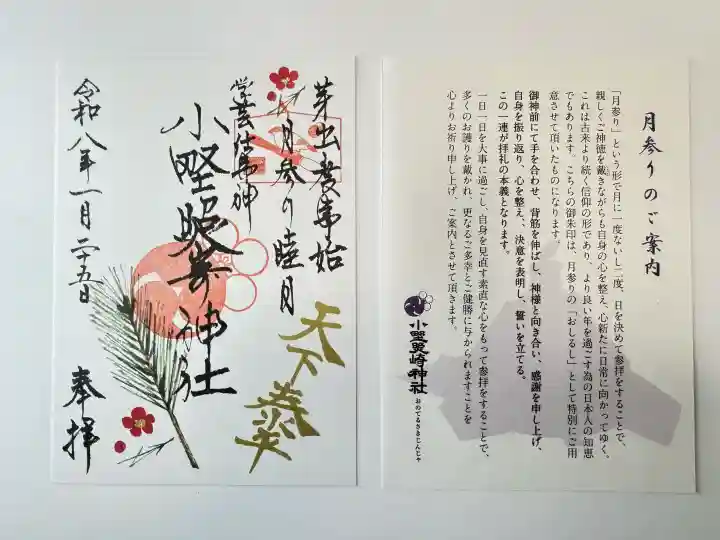 芽出度事始
月参り睦月
天下泰平
学芸結馬神
小野照崎神社
令和八年一月二十五日
奉拝
月参りのご案内
「月参り」という形で月に一度ないし二度、日を決めて参拝をすることで、
親しくご神徳を戴きながらも自身の心を整え、心新たに日常に向かってゆく。
これは古来より続く信仰の形であり、より良い年を過ごす為の日本人の知恵
でもあります。こちらの御朱印は、月参りの「おしるし」として特別にご用
意させて頂いたものになります。
御神前にて手を合わせ、背筋を伸ばし、神様と向き合い、感謝を申し上げ、
自身を振り返り、心を整え、決意を表明し、誓いを立てる。
この一連が拝礼の本義となります。
一日一日を大事に過ごし、自身を見直す素直な心をもって参拝をすることで、
多くのお護りを戴かれ、更なるご多幸とご健勝に与かられますことを
心よりお祈り申し上げ、ご案内とさせて頂きます。
小野照崎神社
おのてるさきじんじゃ